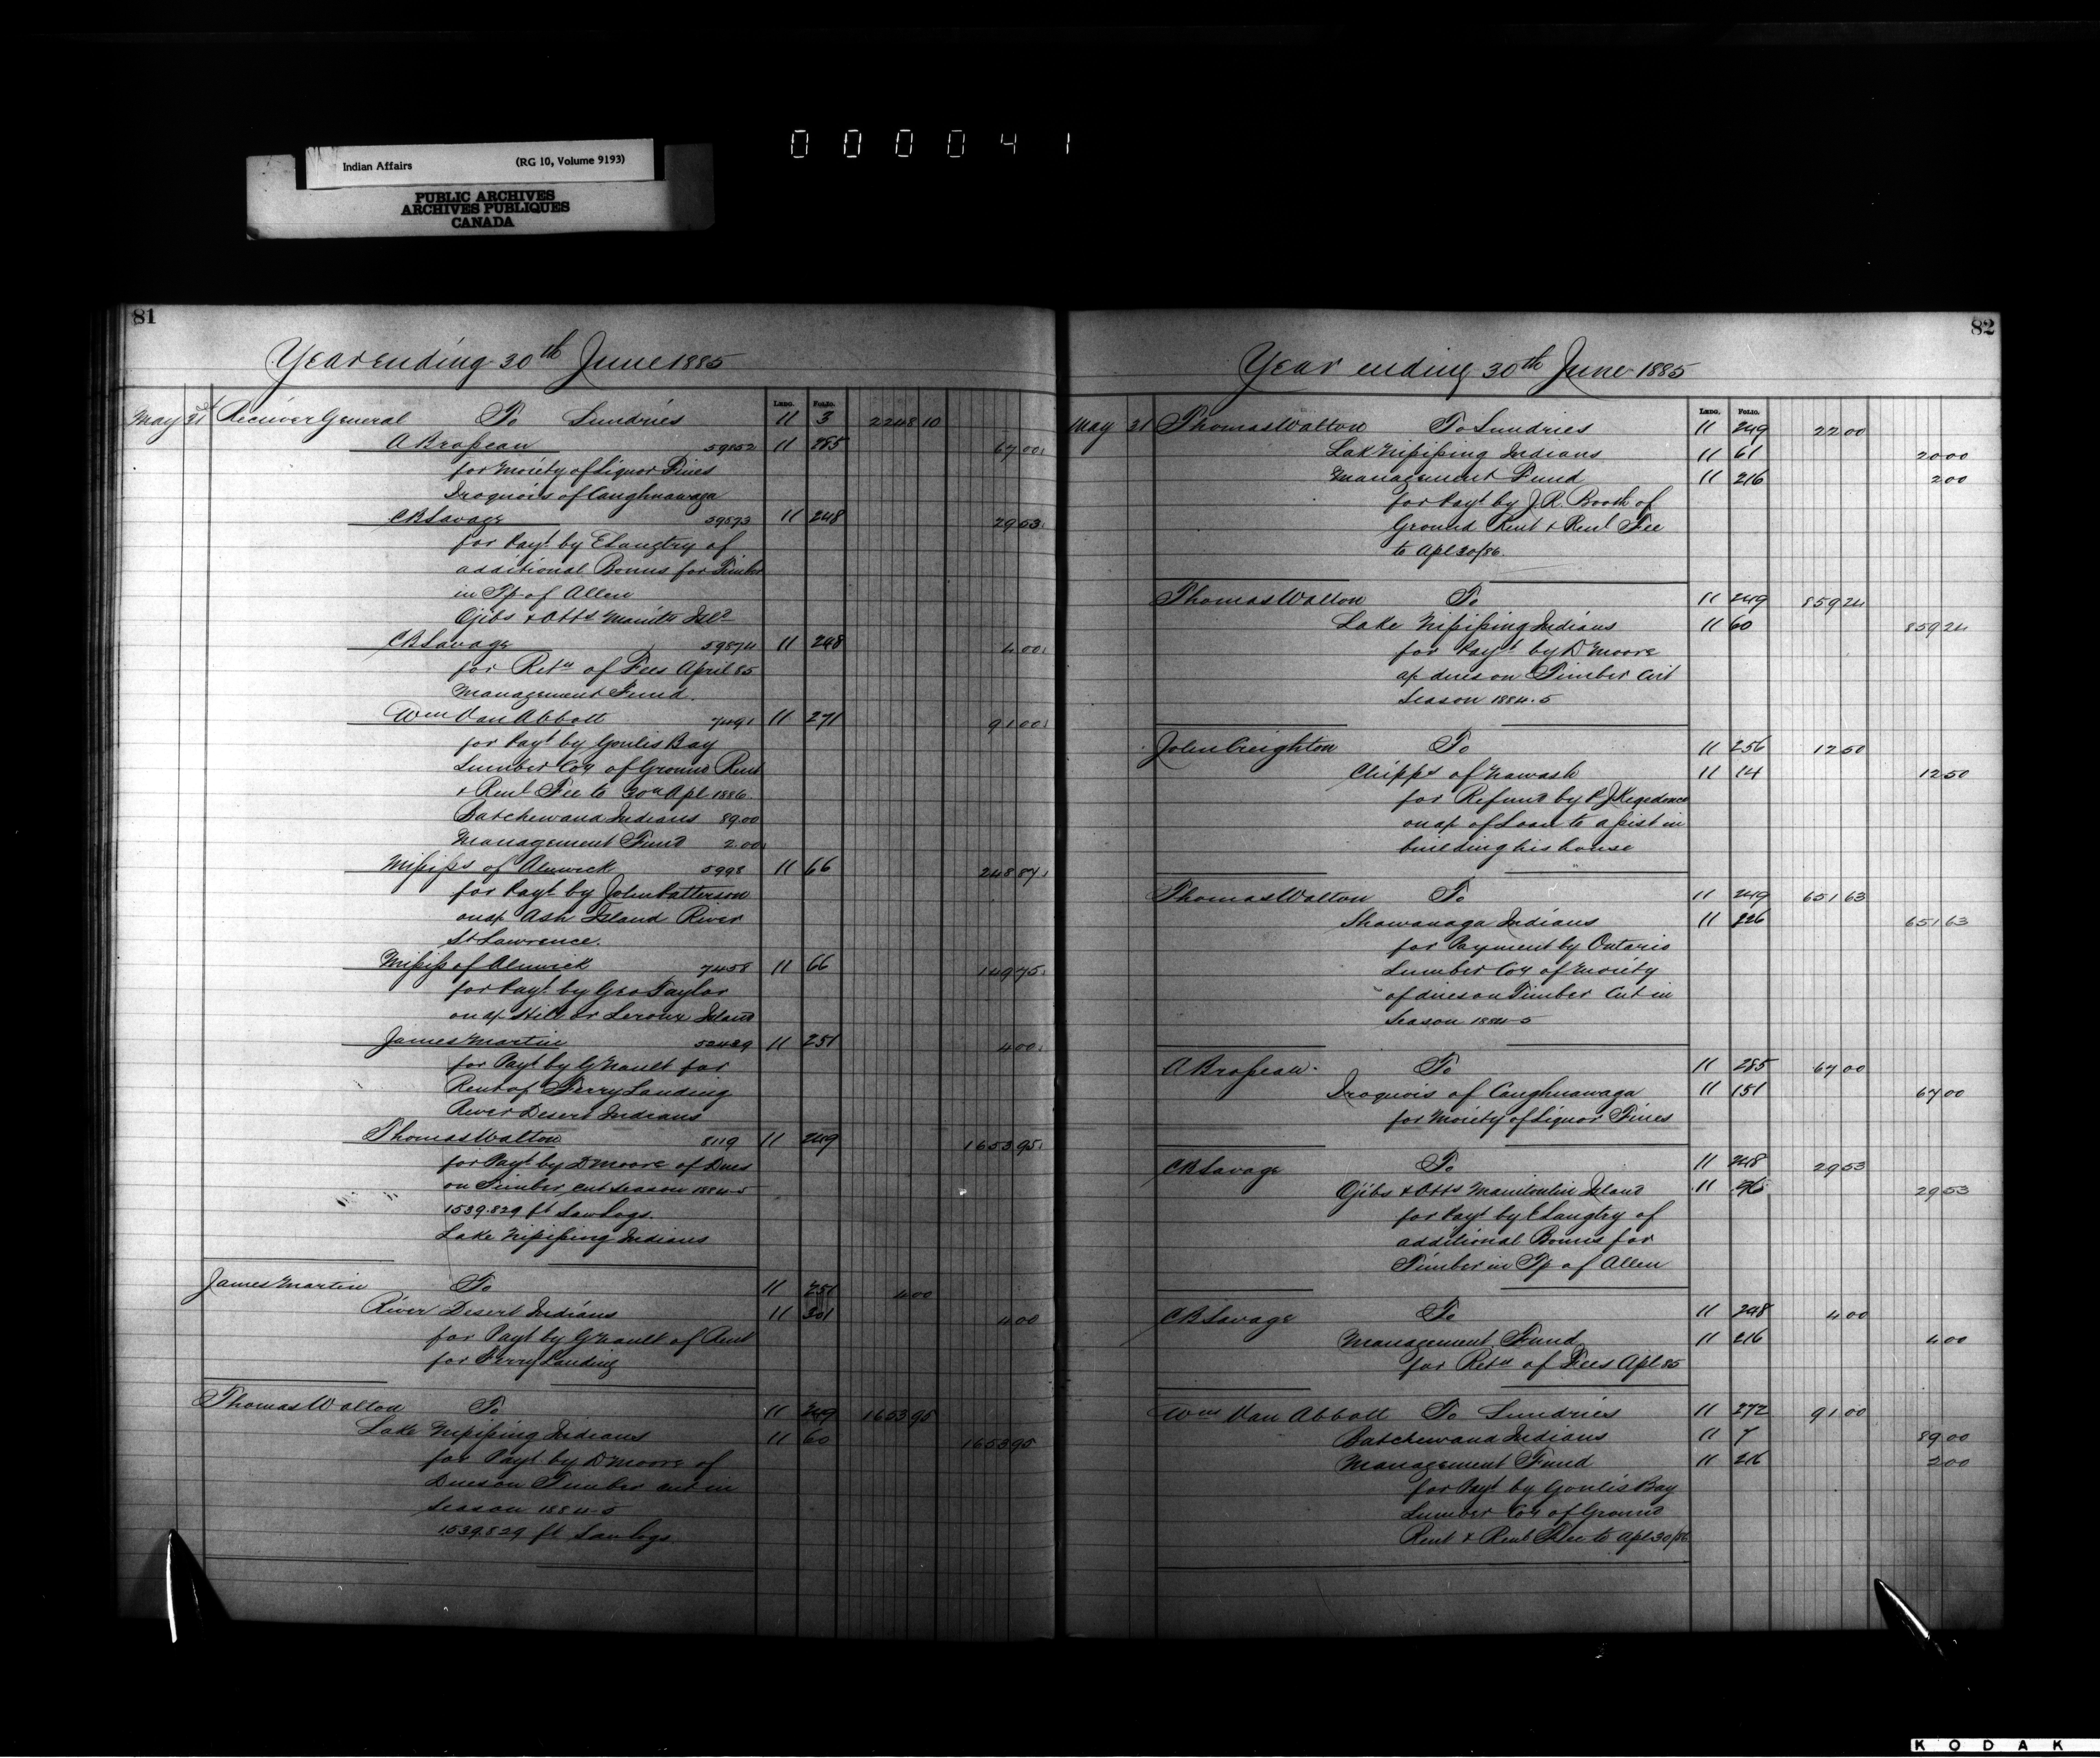 000041
Indian Affairs (RG 10, Volume 9193)
PUBLIC ARCHIVES
ARCHIVES PUBLIQUES
CANADA
81
Year ending 30th June 1885
LEDG. FOLIO.
May 31st Receiver General To Sundries 11 3 2248 10
A Brosseau 59852 11 285 67 00
for Moiety of Liquor Fines
Iroquois of Caughnawaga
CB Savage 59573 11 248 29 53
for Payt by E Langtry of
additional Bonus for Timber
in Tp of Allen
Ojibs & Otts Manitn Isld
CB Savage 59874 11 248 4 00
for Retn of Fees April 85
Management Fund
Wm Van Abbott 7491 11 271 91 00
for Payt by Goulis Bay
Lumber Coy of Ground Rent
& Rent Fee to 30th Apl 1886
Batchewana Indians 89.00
Management Fund 2.00
Mississ of Alnwick 5998 11 66 248 87
for Payt by John Patterson
on a/c Ash Island River
St Lawrence.
Mississ of Alnwick 7458 11 66 149 75
for Payt by Geo Taylor
on a/c Hill or Leroux Island
James Martin 52489 11 251 4 00
for Payt by G Nault for
Rent of Ferry Landing
River Desert Indians
Thomas Walton 8119 11 249 1653 95
for Payt by D Moore of Dues
on Timber cut season 1884-5
1539.829 ft Sawlogs.
Lake Nipissing Indians
James Martin To 11 251 4 00
River Desert Indians 11 301 4 00
for Payt by G Nault of Rent
for Ferry Landing
Thomas Walton To 11 249 1653 95
Lake Nipissing Indians 11 60 1653 95
for Payt by D Moore of
Dues on Timber cut in
Season 1884-5
1539.829 ft Sawlogs.
82
Year ending 30th June 1885
LEDG. FOLIO.
May 31 Thomas Walton To Sundries 11 249 22 00
Lake Nipissing Indians 11 61 20 00
Management Fund 11 216 2 00
for Payt by J.R. Booth of
Ground Rent & Rent Fee
to Apl 30/86.
Thomas Walton To 11 249 859 24
Lake Nipissing Indians 11 60 859 24
for Payt by D Moore
a/c dues on Timber Cut
Season 1884-5
John Creighton To 11 256 12 50
Chipps of Nawash 11 14 12 50
for Refund by P J Kegedonce
on a/c of Loan to assist in
building his house
Thomas Walton To 11 249 651 63
Shawanaga Indians 11 226 651 63
for Payment by Ontario
Lumber Coy of Moiety
of dues on Timber Cut in
Season 1884-5
A Brosseau To 11 285 67 00
Iroquois of Caughnawaga 11 151 67 00
for Moiety of Liquor Fines
CB Savage To 11 248 29 53
Ojibs & Otts Manitoulin Island 11 76 29 53
for Payt by E Langtry of
additional Bonus for
Timber in Tp of Allen
CB Savage To 11 248 4 00
Management Fund 11 216 4 00
for Retn of Fees Apl 85
Wm Van Abbott To Sundries 11 272 91 00
Batchewana Indians 11 7 89 00
Management Fund 11 216 2 00
for Payt by Goulis Bay
Lumber Coy of Ground
Rent & Rent Fee to Apl 30/86
KODAK